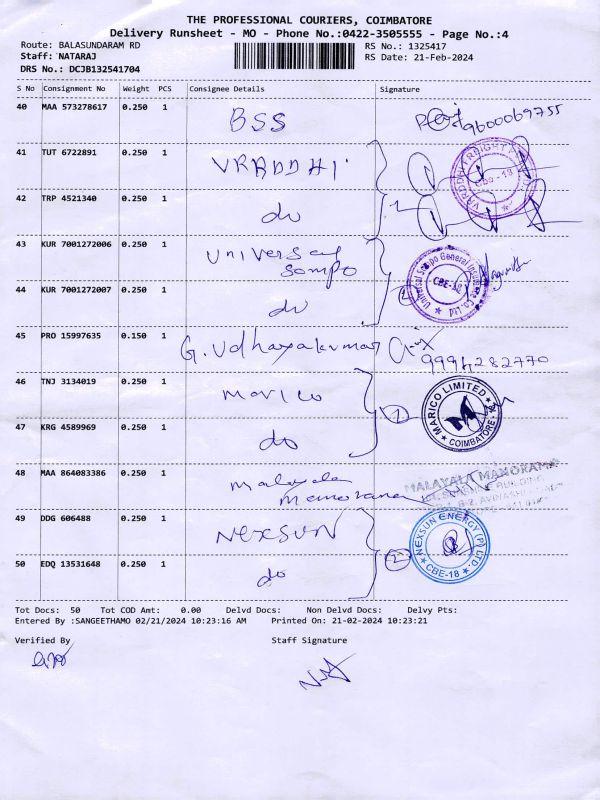 THE PROFESSIONAL COURIERS, COIMBATORE
Delivery Runsheet - MO - Phone No.:0422-3505555 - Page No.:4
Route: BALASUNDARAM RD RS No.: 1325417
Staff: NATARAJ RS Date: 21-Feb-2024
DRS No.: DCJB132541704
S No Consignment No Weight PCS Consignee Details Signature
40 MAA 573278617 0.250 1 BSS 9600069755
41 TUT 6722891 0.250 1 VRADDHI
42 TRP 4521340 0.250 1 do
43 KUR 7001272006 0.250 1 Universal Sompo
Universal Sompo General Insurance Co. Ltd. CBE-18
44 KUR 7001272007 0.250 1 do
45 PRO 15997635 0.150 1 G. Udhayakumar 9994282770
46 TNJ 3134019 0.250 1 Marico
MARICO LIMITED COIMBATORE
47 KRG 4589969 0.250 1 do
48 MAA 864083386 0.250 1 Malayala Manorama
MALAYALA MANORAMA
49 DDG 606488 0.250 1 NEXSUN
NEXSUN ENERGY (P) LTD CBE-18
50 EDQ 13531648 0.250 1 do
Tot Docs: 50 Tot COD Amt: 0.00 Delvd Docs: Non Delvd Docs: Delvy Pts:
Entered By :SANGEETHAMO 02/21/2024 10:23:16 AM Printed On: 21-02-2024 10:23:21
Verified By Staff Signature